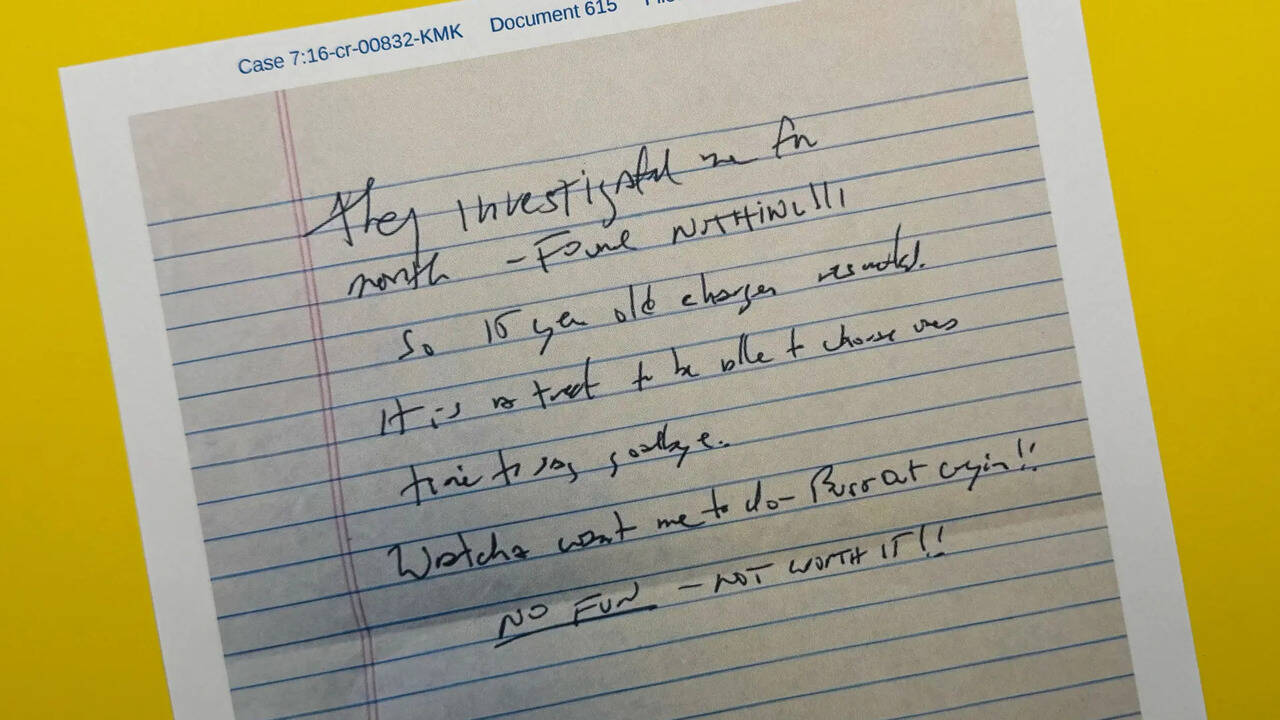 Case 7:16-cr-00832-KMK Document 615
They investigated me for
month - Found NOTHING!!!
So 15 year old charges resulted.
It is a treat to be able to choose ones
time to say goodbye.
Watcha want me to do - Burst out cryin!!
NO FUN - NOT WORTH IT!!